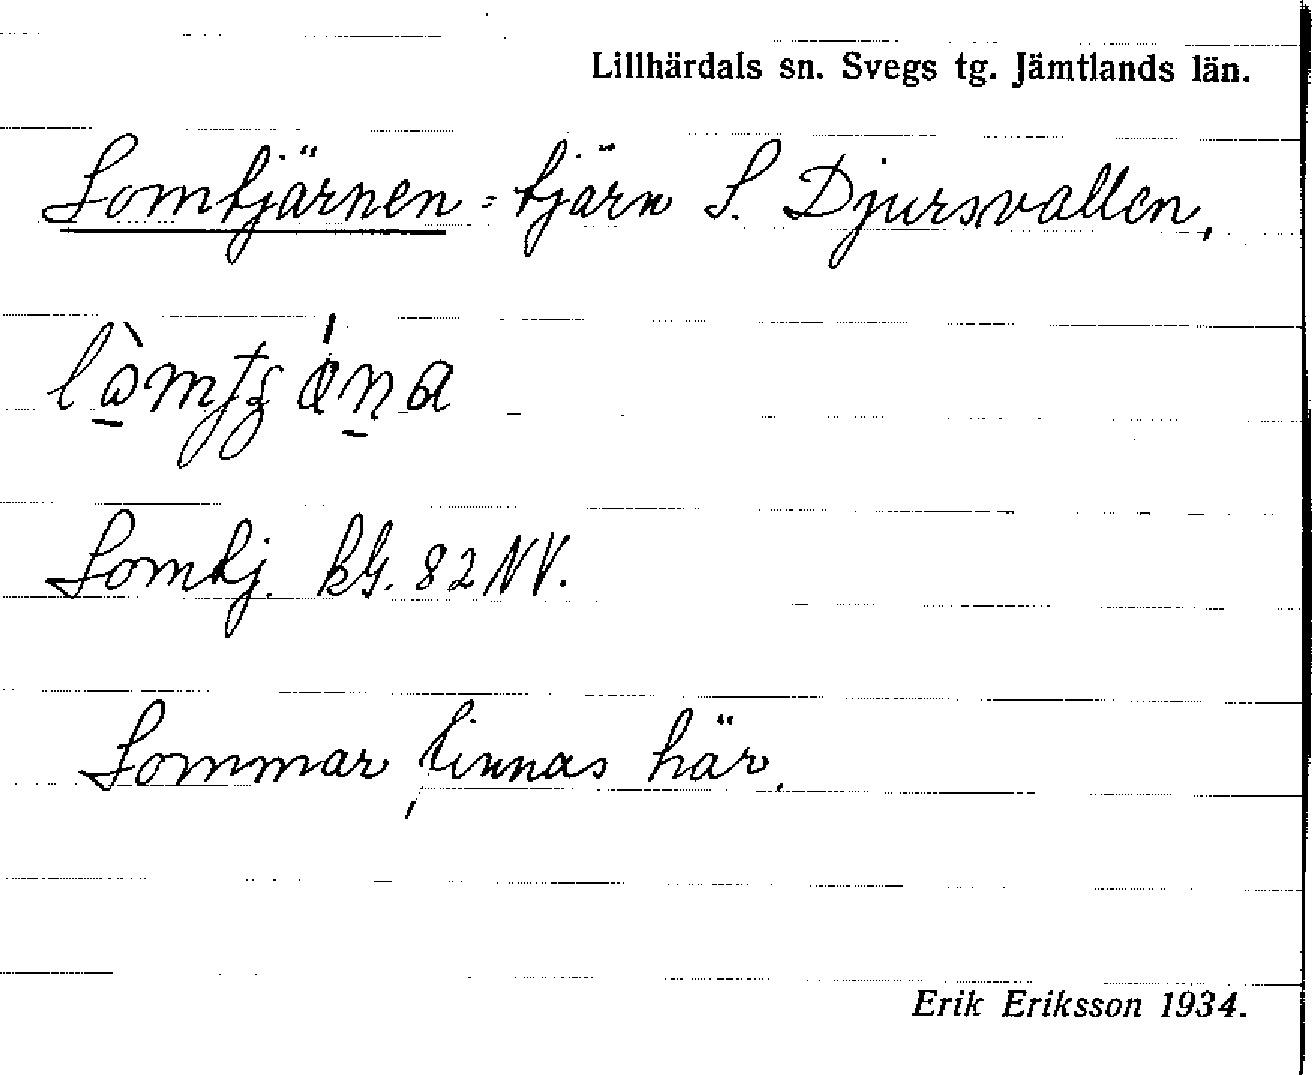 Lillhärdals sn. Svegs tg. Jämtlands län.
Lomtjärnen = tjärn S. Djursvallen,
Lomtj. kG. 82 NV.
Lommar finnas här.
Erik Eriksson 1934.